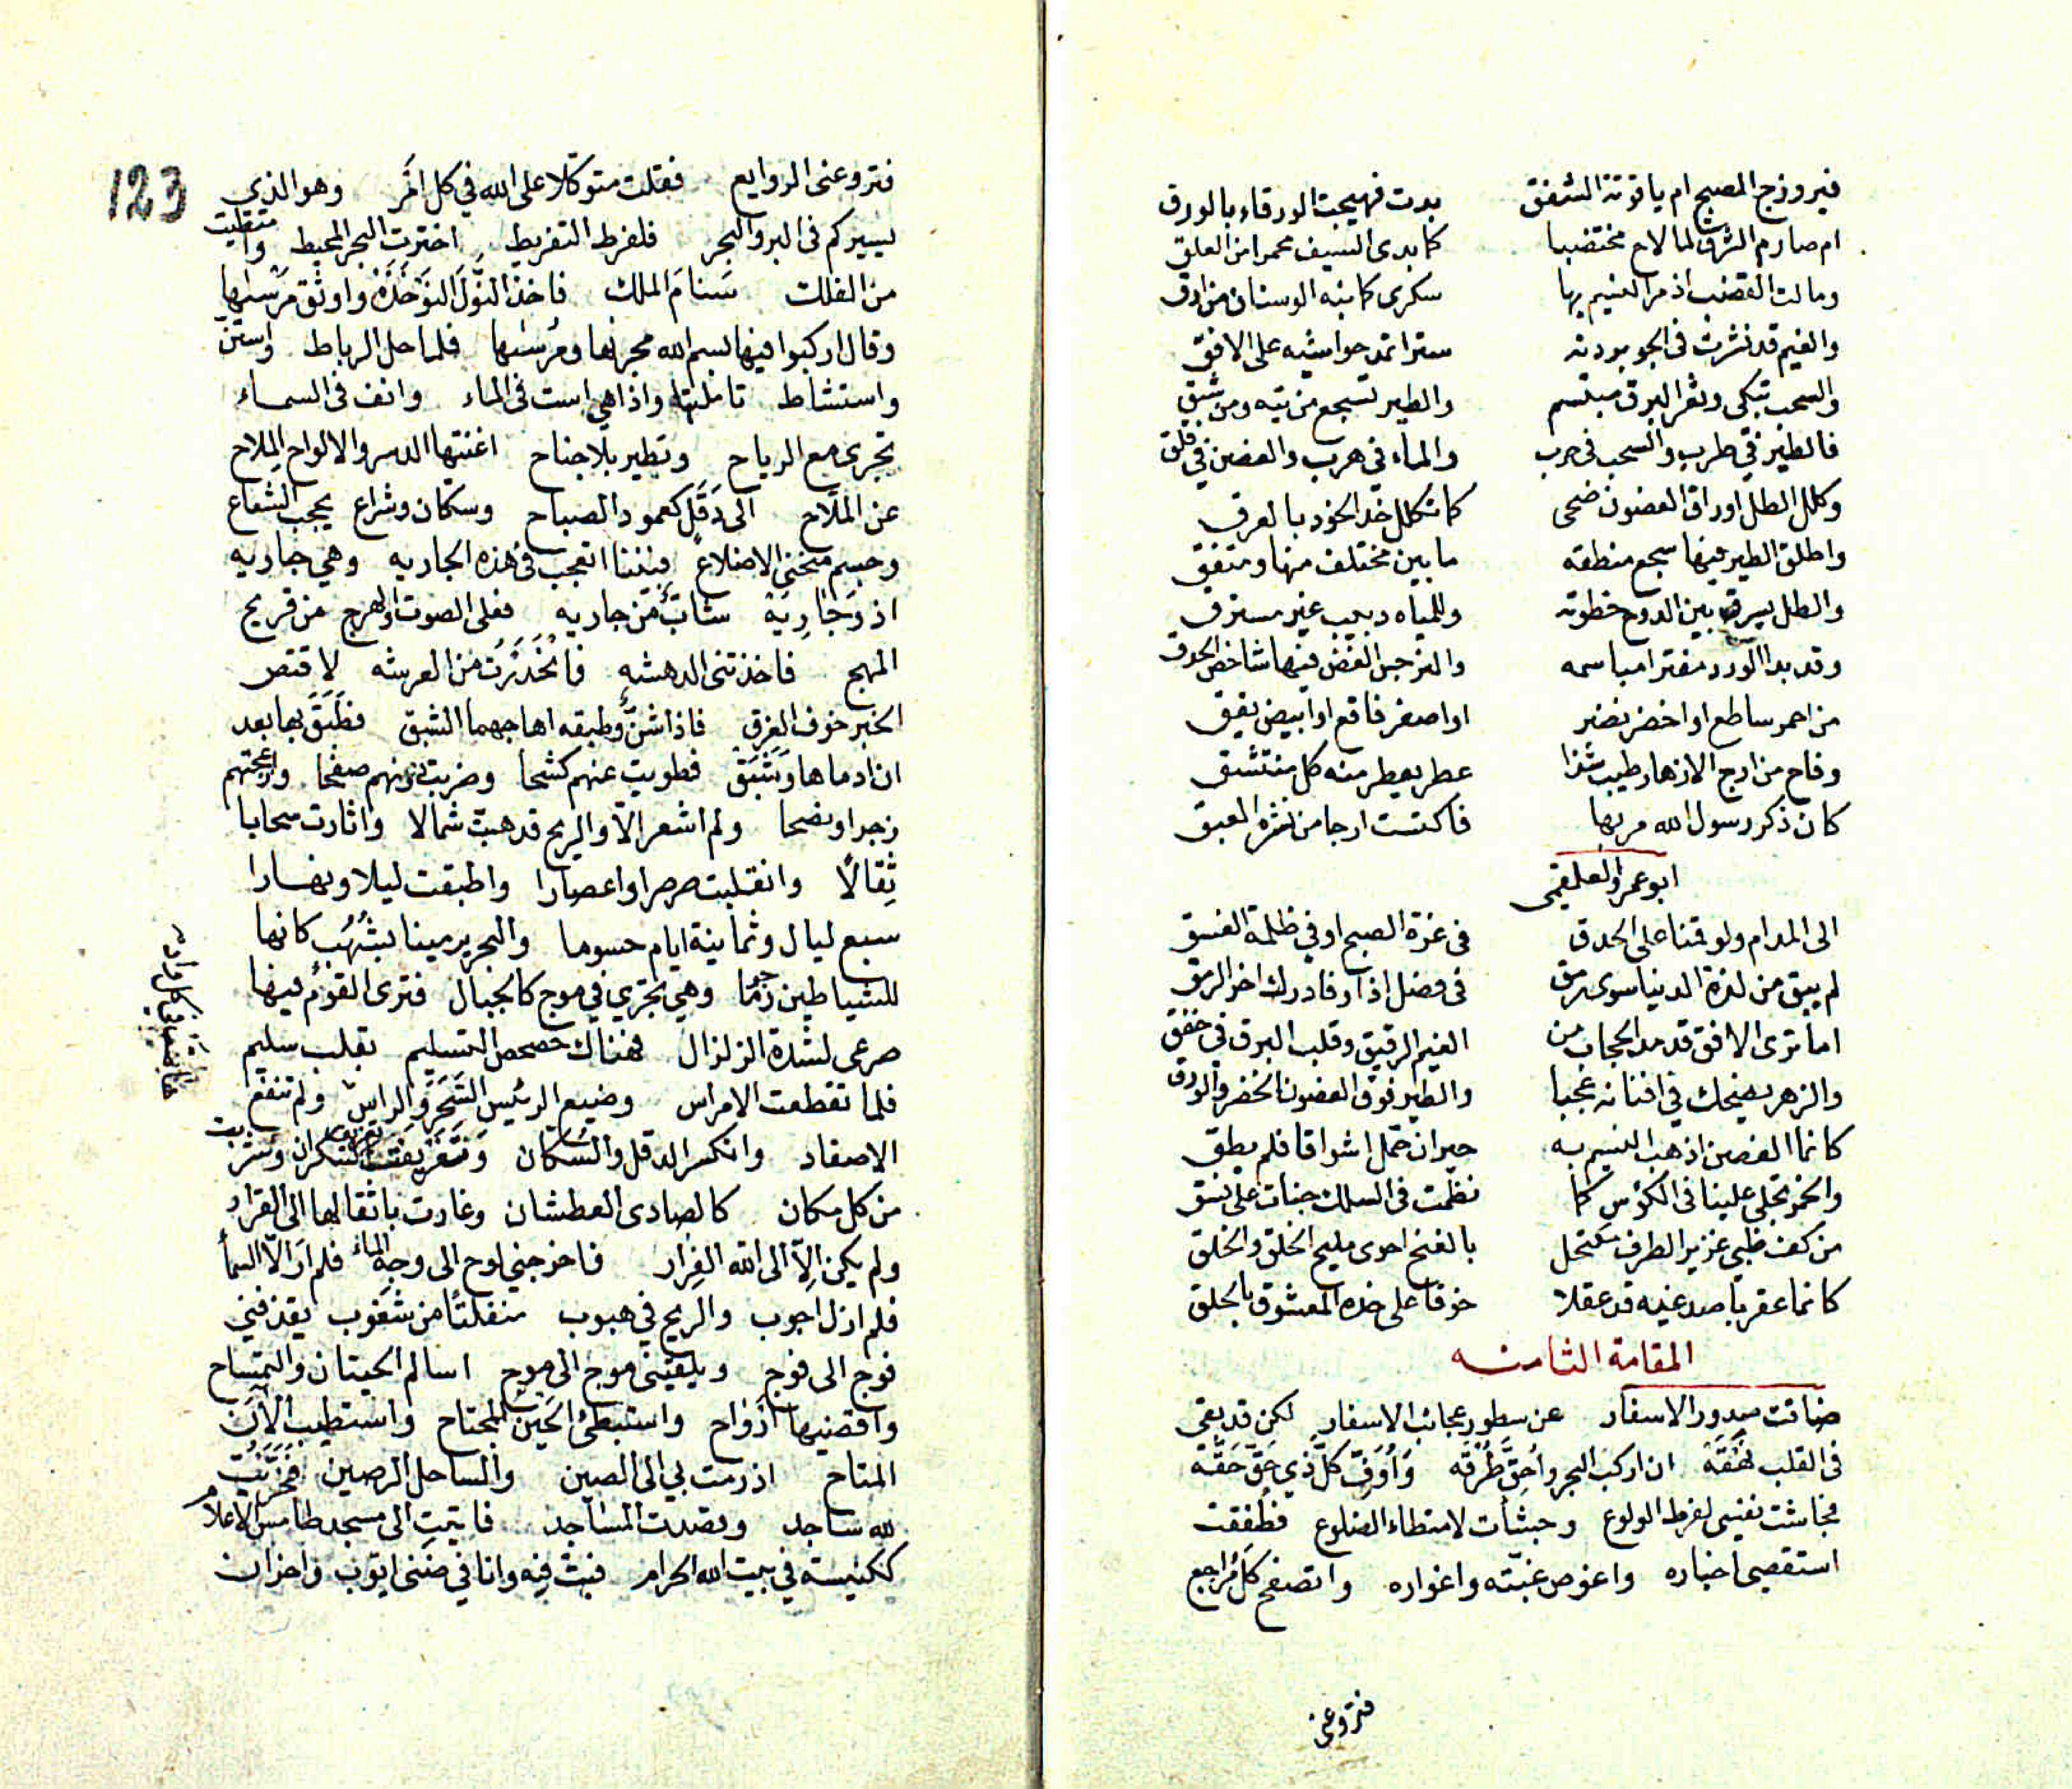 فيروزج الصبح ام ياقوتة الشفق بدت فهيجت الورقاء بالورق
ام صارم الشرق لما لاح مختضبا كما بدى السيف محمرا من العلق
ومالت القضب اذ مر النسيم بها سكرى كما نبه الوسنان من ارق
والغيم قد نشرت فى الجو بردته سترا تمد حواشيه على الافق
والسحب تبكى وثغر البرق مبتسم والطير تسجع من تيه ومن شبق
فالطير في طرب والسحب فى حرب والماء في هرب والغصن في قلق
وكلل الطل اوراق الغصون ضحى كما تكلل خد الخود بالعرق
واطلق الطير فيها سجع منطقه ما بين مختلف منها ومتفق
والظل يسرق بين الدوح خطوته وللمياه دبيب غير مسترق
وقد بدا الورد مفترا مباسمه والنرجس الغض فيها شاخص الحدق
من احمر ساطع او اخضر نضر او اصفر فاقع او ابيض يقق
وفاح من ارج الازهار طيب شذا عطر يعطر منه كل منتشق
كان ذكر رسول الله مر بها فاكتست ارجا من نشره العبق
ابو عمرو العلقمى
الى المدام ولو قمنا على الحدق فى غرة الصبح او في ظلمة الغسق
لم يبق من لذة الدنيا سوى رمق فى فضل اذا وفادرك اخر الرمق
اما ترى الافق قد مد الحجاب من الغيم الرقيق وقلب البرق في خفق
والزهر يضحك في افنانه عجبا والطير فوق الغصون الخضر والورق
كانما الغصن اذ هب النسيم به حيران حمل اشواقا فلم يطق
والخمر تجلى علينا فى الكؤس كما نظمت فى السلك حبات على نسق
من كف ظبي غرير الطرف مكتحل بالغنج احوى مليح الخلق والخلق
كانما عقربا صدغيه قد عقلا خوفا على خده المعشوق بالحلق
المقامة الثامنه
ضاقت صدور الاسفار عن سطور عجائب الاسفار لكن قد بقى
فى القلب لهفة ان اركب البحر واحق طرقه واوفى كل ذي حق حقه
فجاشت نفسى لفرط الولوع وجشأت لامتطاء الضلوع فطفقت
استقصى اخباره واغوص غبته واغواره واتصفح كل مراجع
فتروعنى
123
فتروعنى الروايع فقلت متوكلا على الله في كل امر وهو الذي
يسيركم فى البر والبحر فلفرط التفريط اخترت البحر المحيط وامتطيت
من الفلك سنام الملك فاخذ النول النوخذه واوثق مرسيها
وقال اركبوا فيها بسم الله مجريها ومرسيها فلما حل الرباط واستن
واستشاط تاملتها واذا هي است فى الماء وانف فى السماء
تجرى مع الرياح وتطير بلا جناح اغنتها الدسر والالواح الملاح
عن الملاح الى دقل كعمود الصباح وسكان وشراع يحجب الشعاع
وجسم منحنى الاضلاع فبتنا اتعجب فى هذه الجاريه وهي جاريه
اذ وجارية شابة من جاريه فعلى الصوت والهرج من قريح
المهج فاخذتنى الدهشه فانحدرت من العرشه لاقتص
الخبر خوف الغرق فاذا شن وطبقه اهاجهما الشبق فطبق بها بعد
ان ادماها وشبق فطويت عنهم كشحا وضربت دونهم صفحا واوجعتهم
زجرا ونصحا ولم اشعر الا والريح قد هبت شمالا واثارت سحابا
ثقالا وانقلبت صرصرا واعصارا واطبقت ليلا ونهارا
سبع ليال وثمانية ايام حسوما والبحر يرمينا بشهب كانها
للشياطين رجما وهي تجري في موج كالجبال فترى القوم فيها
صرعى لشدة الزلزال فهناك حصحص التسليم بقلب سليم
فلما تقطعت الامراس وضيع الرئيس الشجر والراس ولم تنفع
الاصفاد وانكسر الدقل والسكان السكران وشربت
من كل مكان كالصادى العطشان وغارت باثقالها الى القرار
ولم يكن الا الى الله الفرار فاخرجني لوح الى وجه الماء فلم ار الا السما
فلم ازل اجوب والريح في هبوب منفلتا من شعوب يقذفني
فوج الى فوج ويلقينى موج الى موج اسالم الحيتان والتمساح
واستبطئ الحين المجتاح واستطيب الآن
المتاح اذ رمت بي الى الصين والساحل الرصين فخررت
لله ساجد وقصدت المساجد فاتيت الى مسجد طامس الاعلام
ككنيسة في بيت الله الحرام فبت فيه وانا في ضنى ايوب واحزان